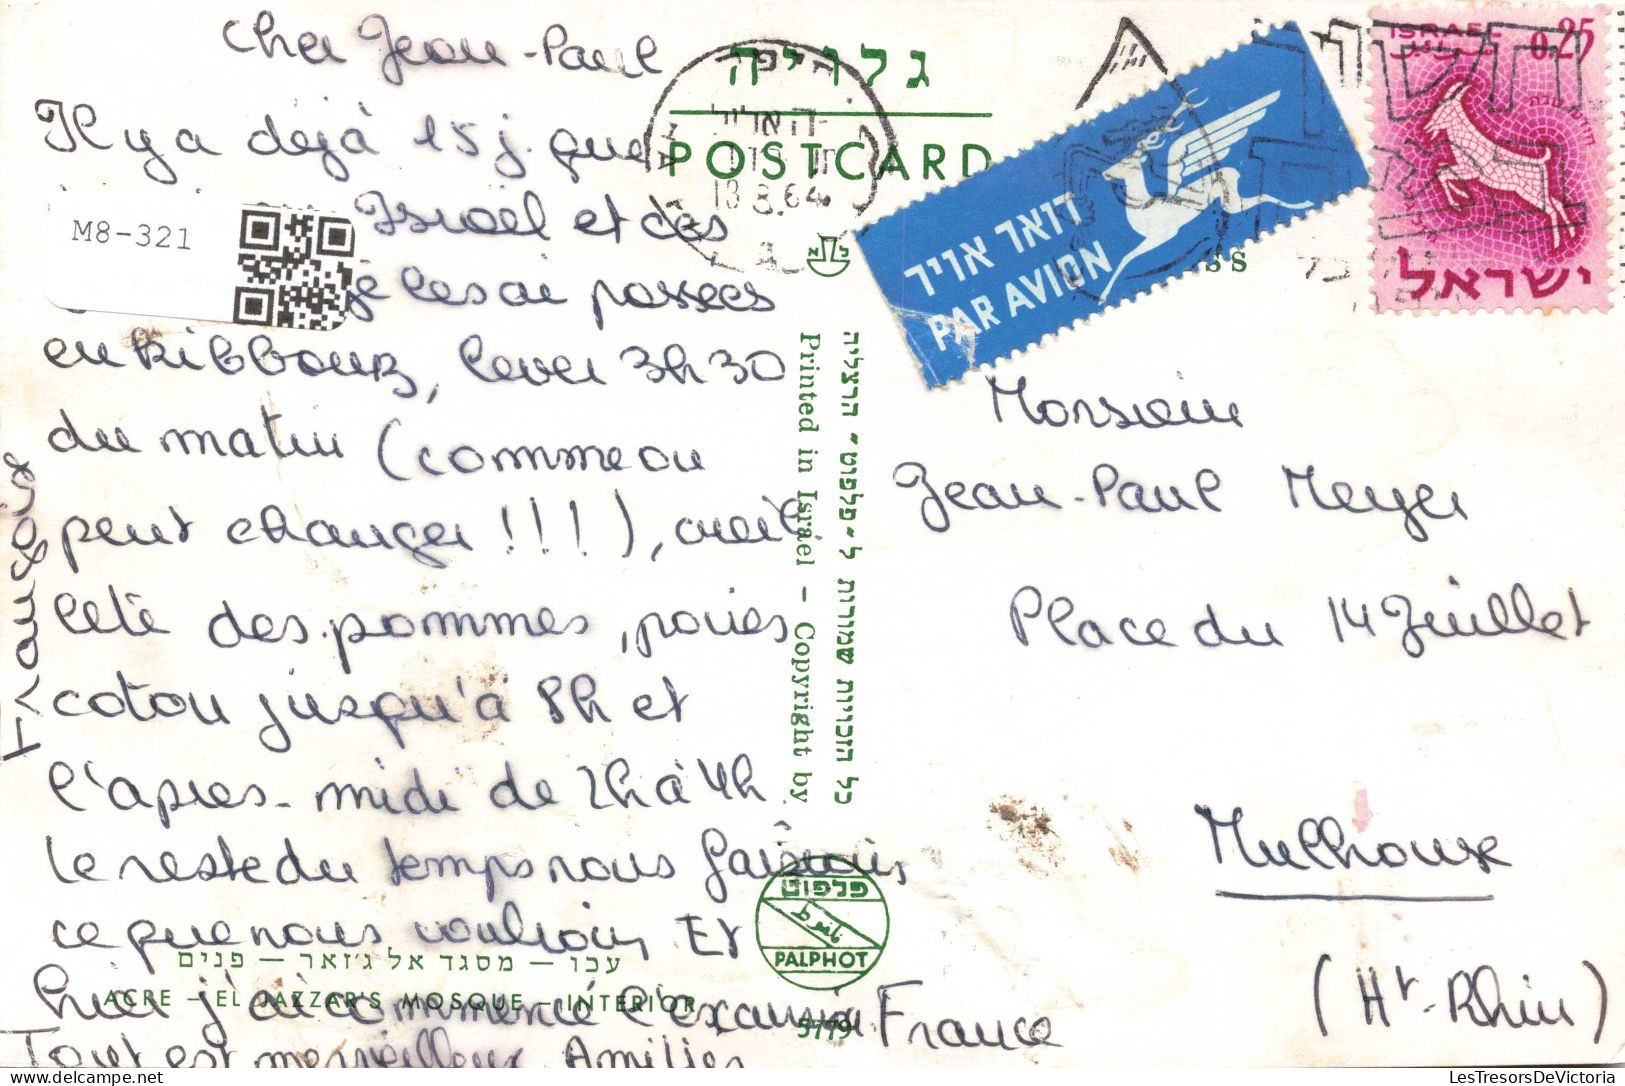 Cher Jean-Paul
Il y a dejà 15 j. que
Israël et ces
je les ai passées
en Kibbouz, lever 3h30
du matin (comme on
peut changer !!!),
l'été des pommes, poires
coton jusqu'à 8h et
l'après-midi de 2h à 4h
le reste du temps nous faisions
ce que nous voulions Et
hier j'ai commencé
Tout est merveilleux Amitiés
François
M8-321
גלויה
POSTCARD
חיפה
13 8.64
דואר אויר
PAR AVION
SS
ISRAEL
0.25
ישראל
Printed in Israel - Copyright by
כל הזכויות שמורות ל״פלפוט״ הרצליה
פלפוט
PALPHOT
עכו – מסגד אל ג׳זאר – פנים
ACRE – EL JAZZAR'S MOSQUE – INTERIOR
5779
Monsieur
Jean-Paul Meyer
Place du 14 Juillet
Mulhouse
(Ht-Rhin)
France
LesTresorsDeVictoria